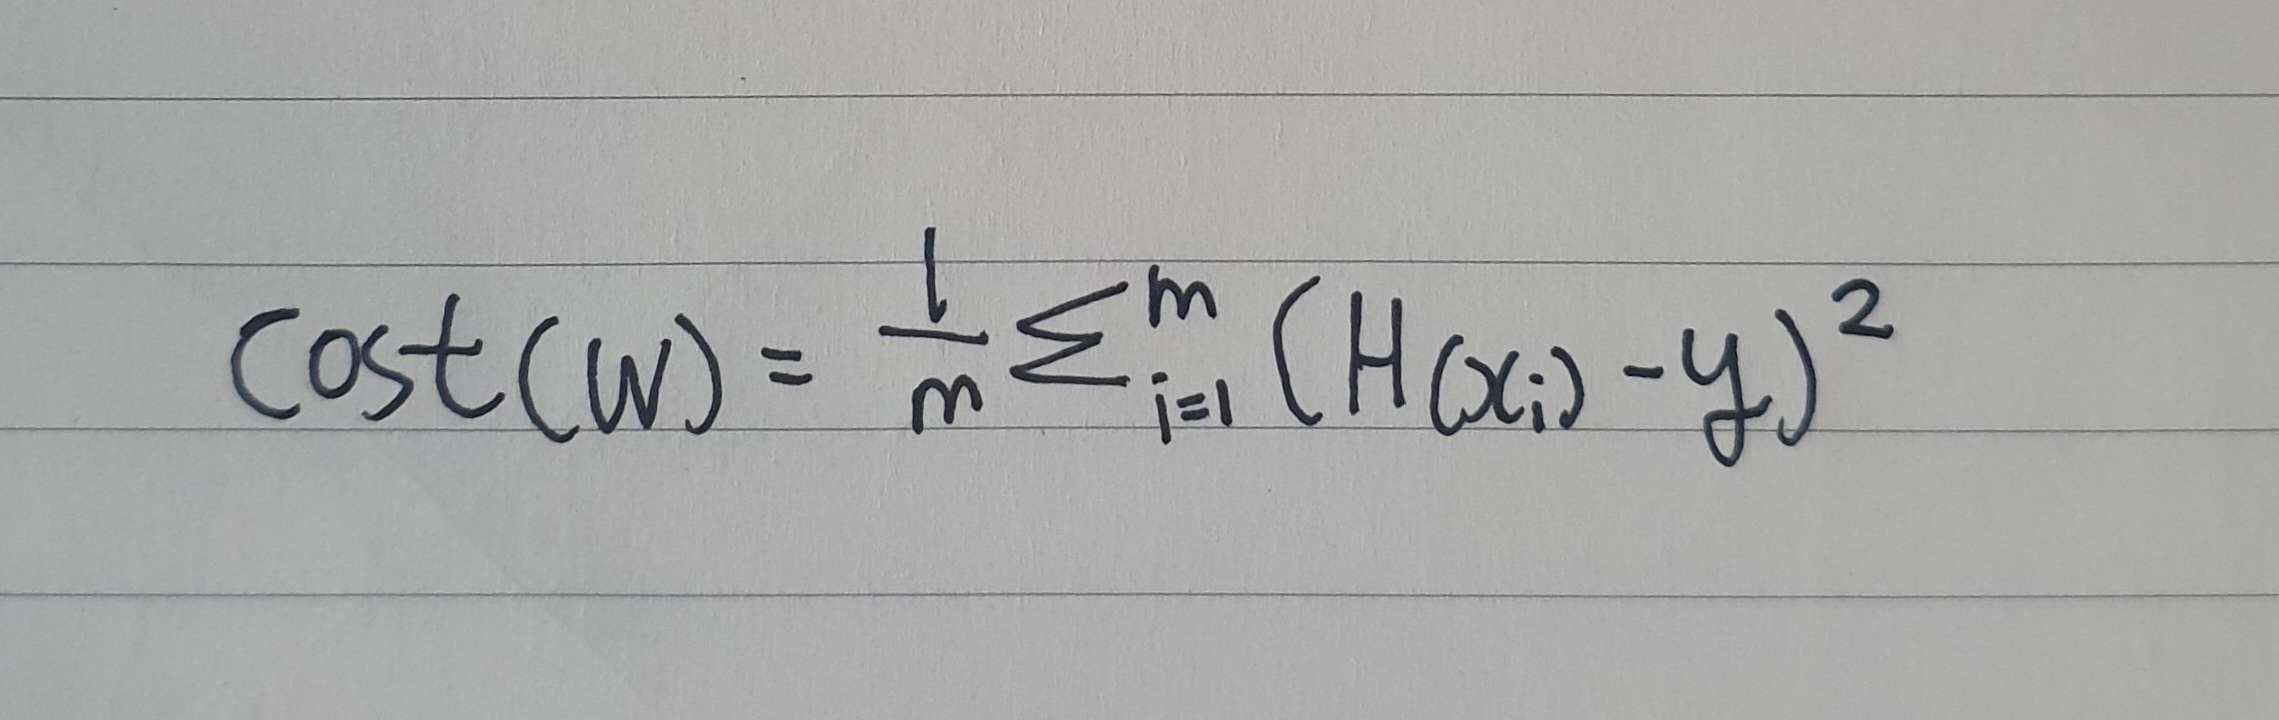 Cost(W) = \frac{1}{m} \sum_{i=1}^{m} (H(x_i) - y)^2